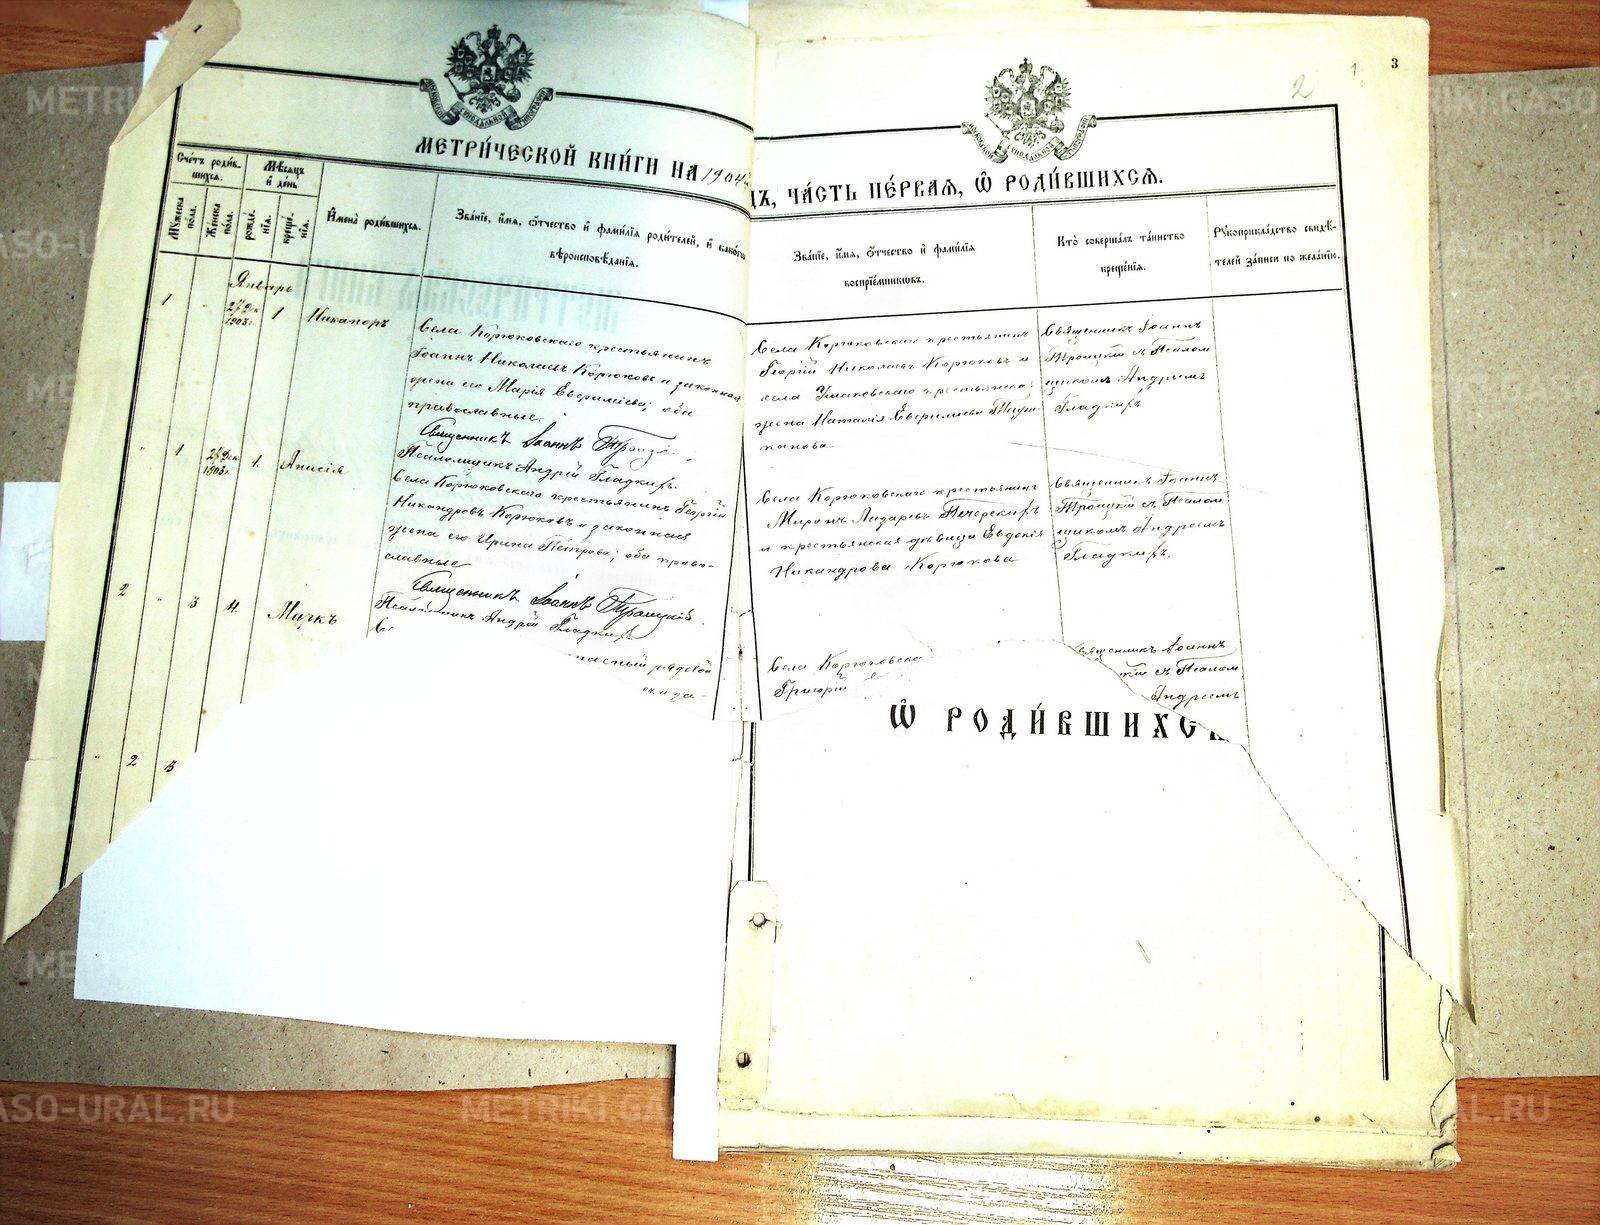 1
3
2
1
МЕТРИ́ЧЕСКОЙ КНИ́ГИ НА 1904
ДЪ, ЧА́СТЬ ПЕ́РВАЯ, Ѽ РОДИ́ВШИХСЯ.
Сче́тъ роди́в-
шихся.
Мѣ́сяцъ
и҆ де́нь
Мꙋ́жеска по́ла.
Же́нска по́ла.
рожде́-
нїѧ.
креще́-
нїѧ.
И҆мена̀ роди́вшихся.
Зва́нїе, и҆́мя, ѻ҆́тчество и҆ фами́лїѧ роди́телей, и҆ како́гѡ
вѣроисповѣ́данїѧ.
Зва́нїе, и҆́мя, ѻ҆́тчество и҆ фами́лїѧ
воспрїе́мникѡвъ.
Кто̀ соверша́лъ та́инство
креще́нїѧ.
Рꙋкоприкла́дство свидѣ́-
телей за́писи по жела́нїю.
Январь
1
27 Дек
1903 г.
1
Никаноръ
Села Корюковскаго крестьянинъ
Іоаннъ Николаевъ Корюковъ и законная
жена его Марія Евфиміева; оба
православные.
Священникъ Іоаннъ Троицкій
Псаломщикъ Андрей Гладкихъ.
Села Корюковскаго крестьянинъ
Георгій Николаевъ Корюковъ и
села Ушаковскаго крестьянска
жена Наталія Евфиміева
Священникъ Іоаннъ
Троицкій съ Псалом
щикомъ Андреемъ
Гладкихъ.
1
1.
Анисія
Села Корюковскаго крестьянинъ Георгій
Никандровъ Корюковъ и законная
жена его Ирина Петрова; оба право-
славные
Священникъ Іоаннъ Троицкій.
Псаломщикъ Андрей Гладкихъ
Села Корюковскаго крестьянинъ
Миронъ Лазаревъ Печерскихъ
и крестьянская дѣвица Евдокія
Никандрова Корюкова
Священникъ Іоаннъ
Троицкій съ Псалом
щикомъ Андреемъ
Гладкихъ.
2
3
4.
Маркъ
рядовой
Села Корюковска
Григорій
вященникъ Іоаннъ
кій съ Псалом
Андреемъ
2
3
Ѽ РОДИ́ВШИХС
METRIKI.GASO-URAL.RU